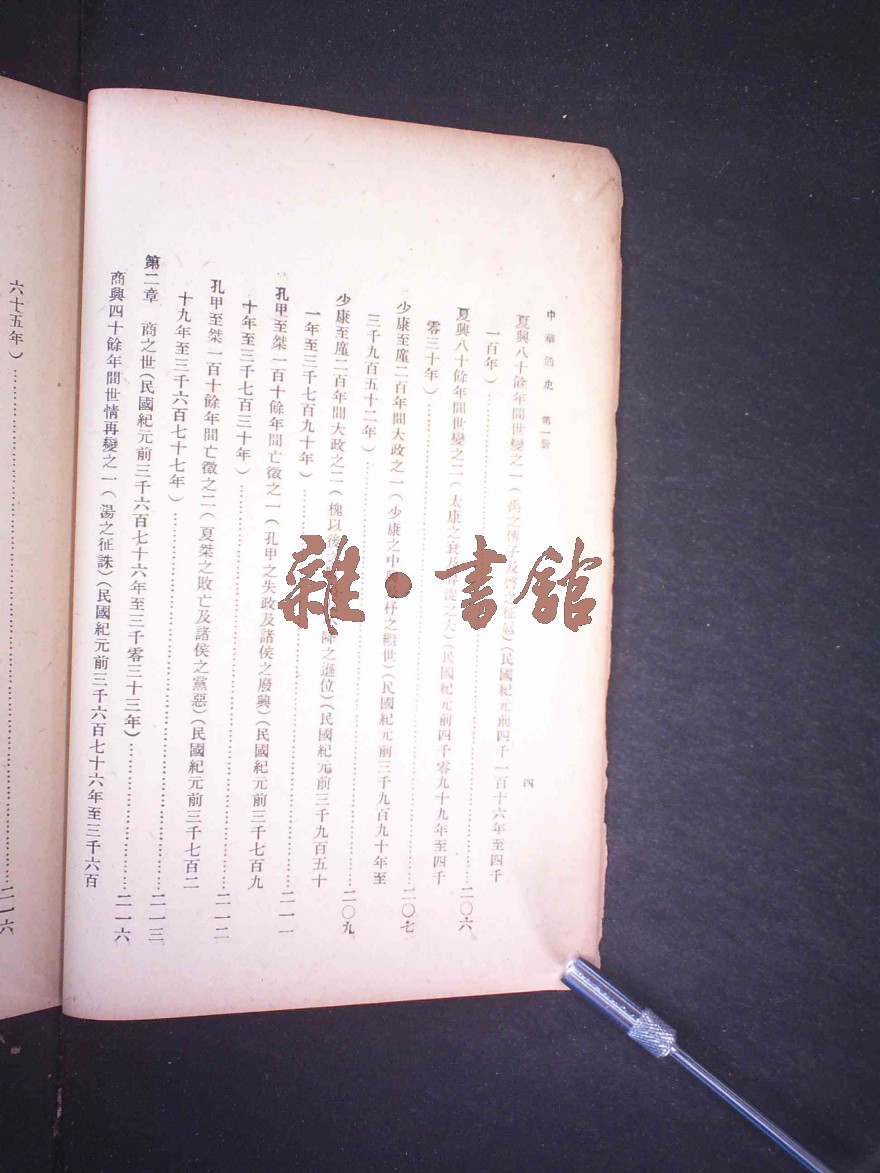 中華通史 第一册
四
夏興八十餘年間世變之一(禹之傳子及啓之征扈)(民國紀元前四千一百十六年至四千
一百年)……二〇六
夏興八十餘年間世變之二(太康之衰 之失)(民國紀元前四千零九十九年至四千
零三十年)……二〇七
少康至廑二百年間大政之一(少康之中 杼之繼世)(民國紀元前三千九百九十年至
三千九百五十二年)……二〇九
少康至廑二百年間大政之二(槐以後 降之遜位)(民國紀元前三千九百五十
一年至三千七百九十年)……二一一
孔甲至桀一百十餘年間亡徵之一(孔甲之失政及諸侯之廢興)(民國紀元前三千七百九
十年至三千七百三十年)……二一二
孔甲至桀一百十餘年間亡徵之二(夏桀之敗亡及諸侯之黨惡)(民國紀元前三千七百二
十九年至三千六百七十七年)……二一三
第二章 商之世(民國紀元前三千六百七十六年至三千零三十三年)……二一六
商興四十餘年間世情再變之一(湯之征誅)(民國紀元前三千六百七十六年至三千六百
六十五年)……二一六
雜·書館